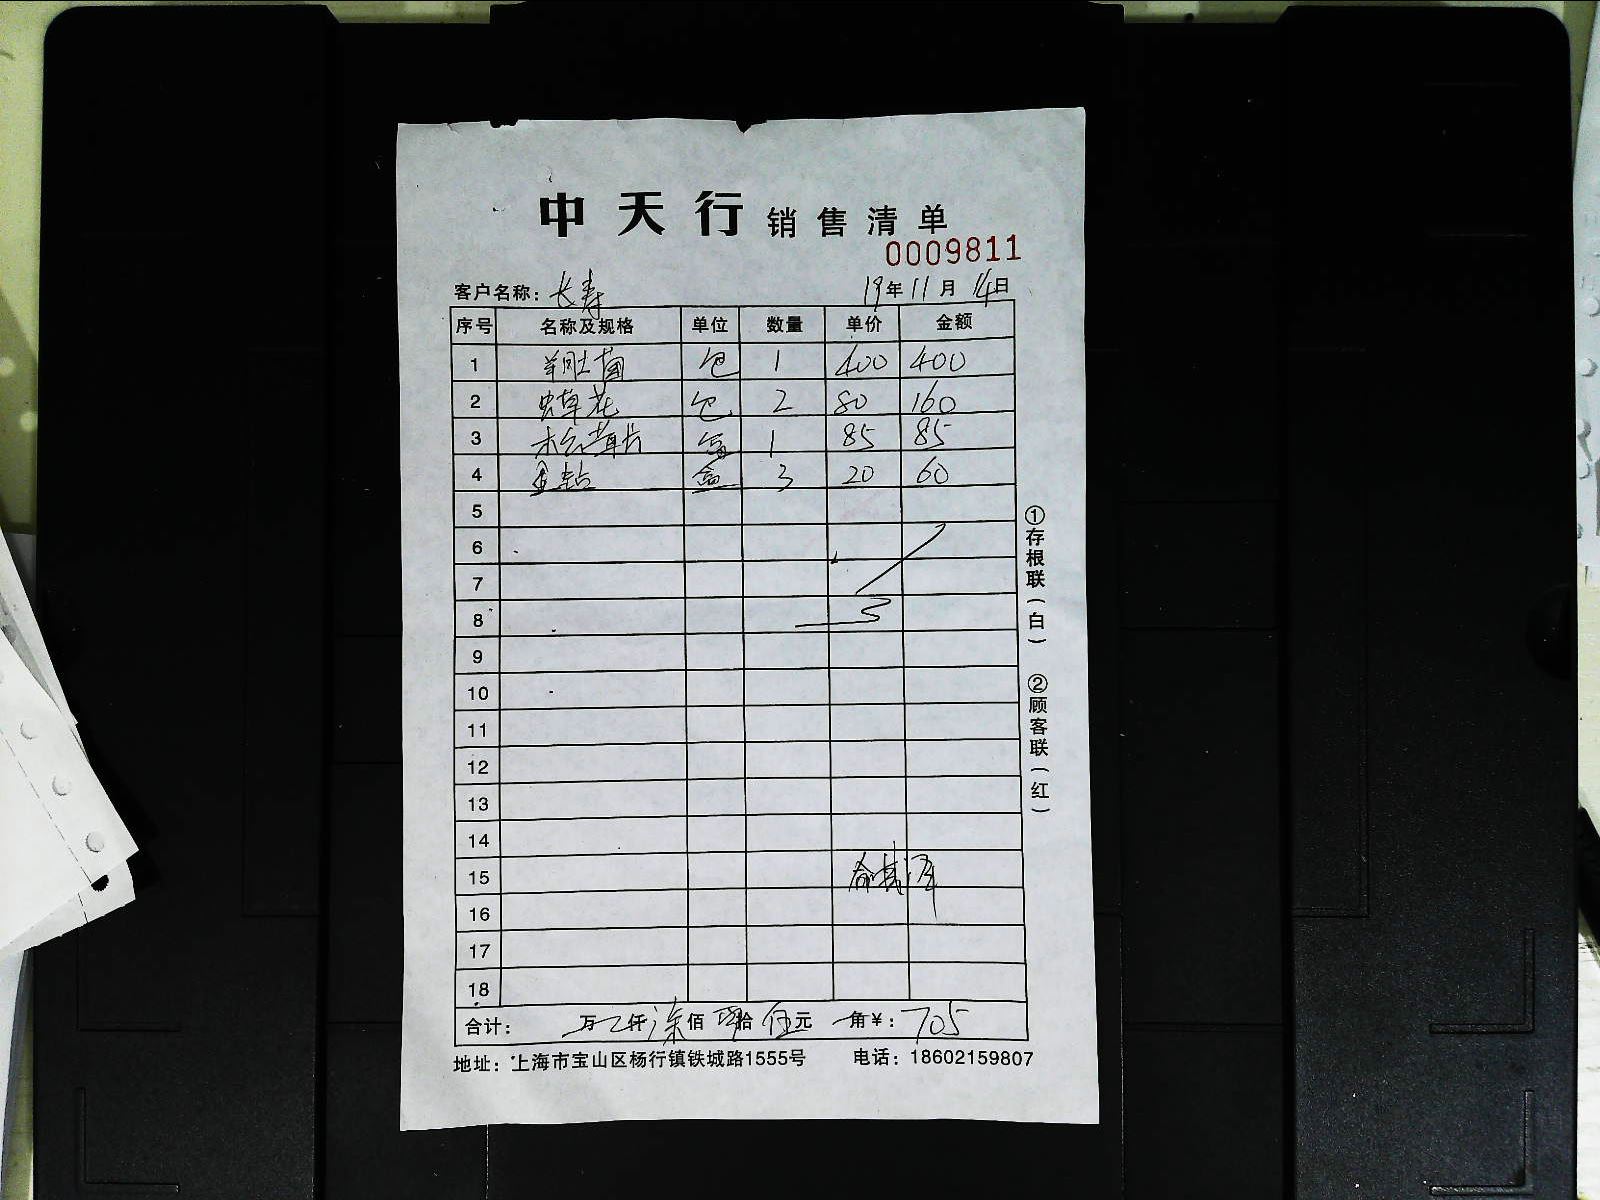 中天行 销售清单
0009811
客户名称: 长寿 19年11月14日
序号 名称及规格 单位 数量 单价 金额
1 羊肚菌 包 1 400 400
2 虫草花 包 2 80 160
3 盒 1 85 85
4 盒 3 20 60
5
6
7
8
9
10
11
12
13
14
15
16
17
18
合计: 万 仟 佰 拾 伍元 角¥: 705
地址: 上海市宝山区杨行镇铁城路1555号 电话: 18602159807
①存根联(白) ②顾客联(红)